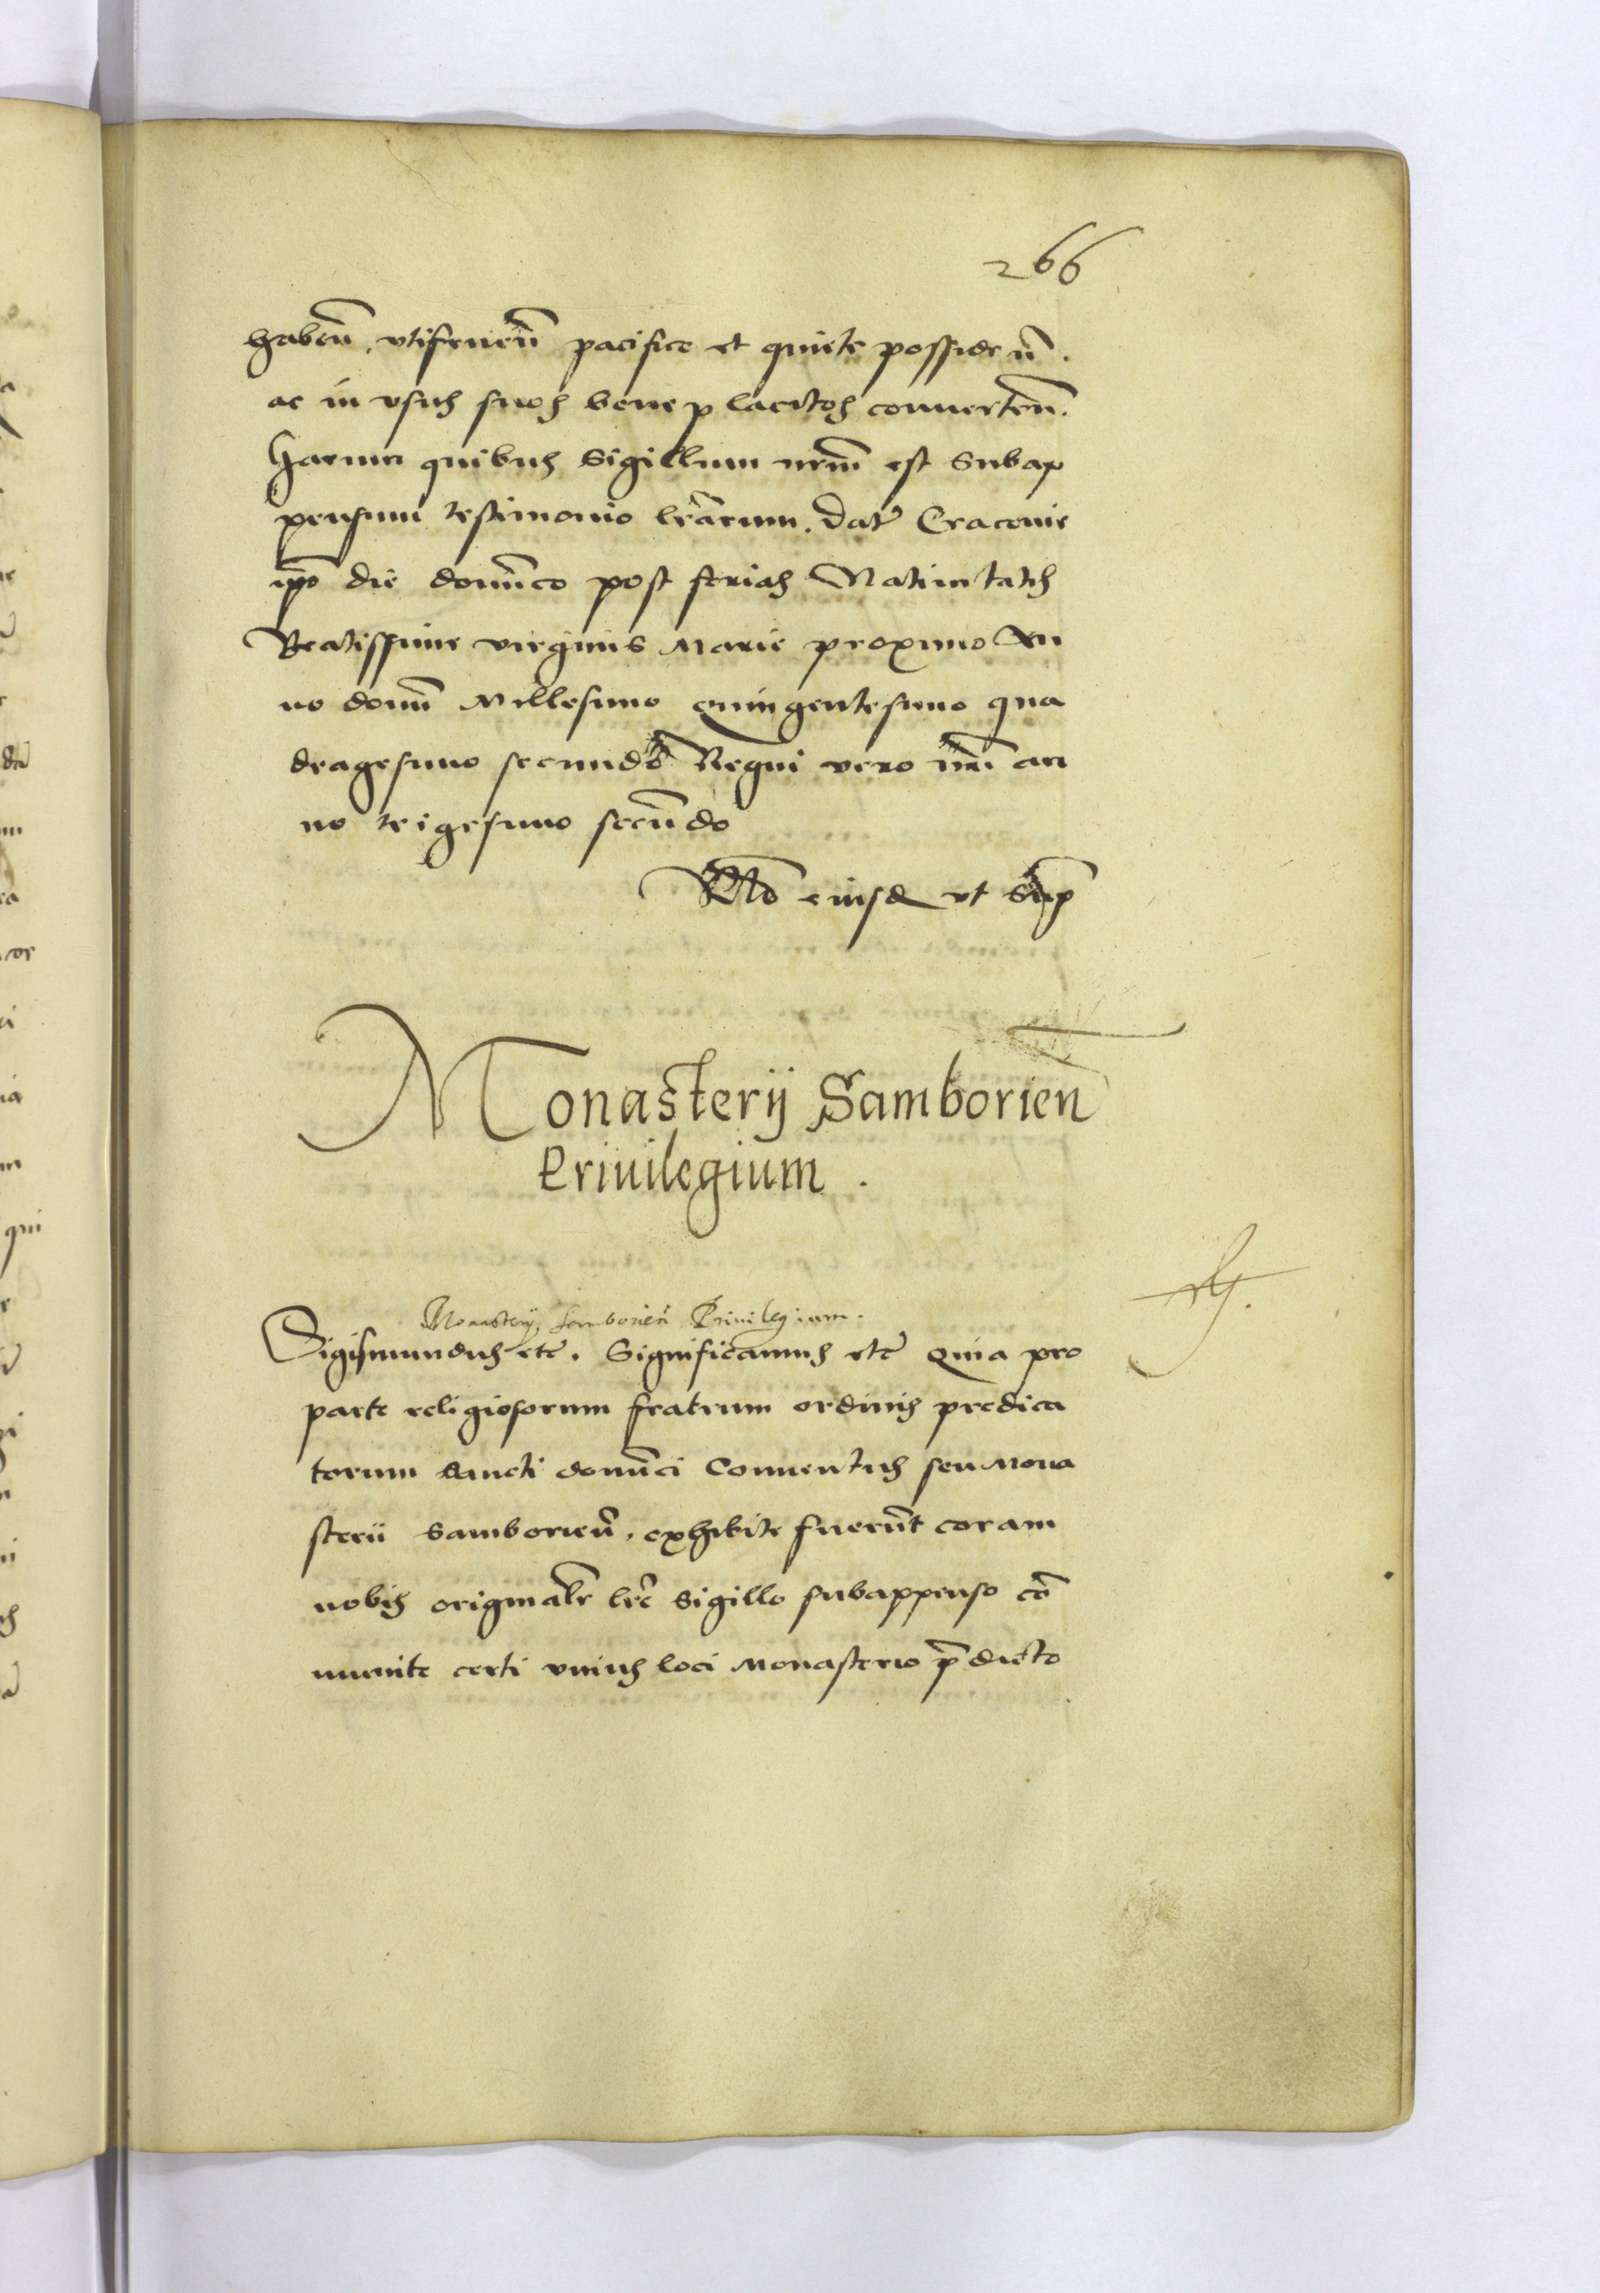 266
haben̄. vtifruen̄ pacifice et quiete possiden̄.
ac in vsus suos bene placitos conuerten̄.
Harum quibus Sigillum nr̄m est Subap
pensum testimonio lr̄arum. Dat̄ Cracouie
ip̄o die domīco post ferias Natiuitatis
Beatissime virginis Marie proximo An
no domī Millesimo quingentesimo qua
dragesimo secundo Regni vero nr̄i an
no trigesimo secūdo
eiusd ut supr̄
Monasterij Samborien̄
Priuilegium.
Monasterij Samborien̄ Priuilegium.
Sigismundus etc̄. Significamus etc̄ Quia pro
parte religiosorum fratrum ordinis predica
torum Sancti domīci Conuentus seu Mona
sterii Samborien̄. exhibite fuerūt coram
nobis originales lr̄e Sigillo subappenso cō
munite certi vnius loci Monasterio p̄dicto